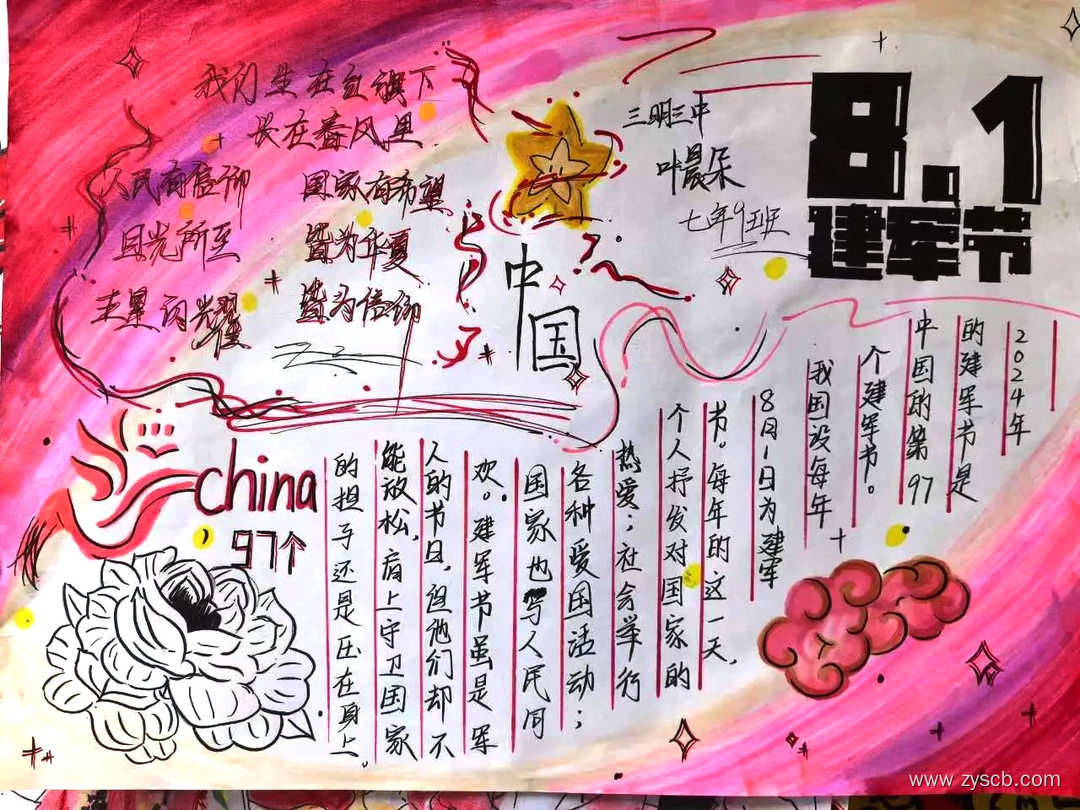 我们生在红旗下
长在春风里
人民有信仰 国家有希望
目光所至 皆为华夏
五星闪耀 皆为信仰
中国
三明三中
叶晨朵
七年9班
8.1
建军节
2024年
的建军节是
中国的第97
个建军节。
我国设每年
8月1日为建军
节。每年的这一天，
个人抒发对国家的
热爱；社会举行
各种爱国活动；
国家也与人民同
欢。建军节虽是军
人的节日，但他们却不
能放松，肩上守卫国家
的担子还是压在身上。
china
97个
www.zyscb.com